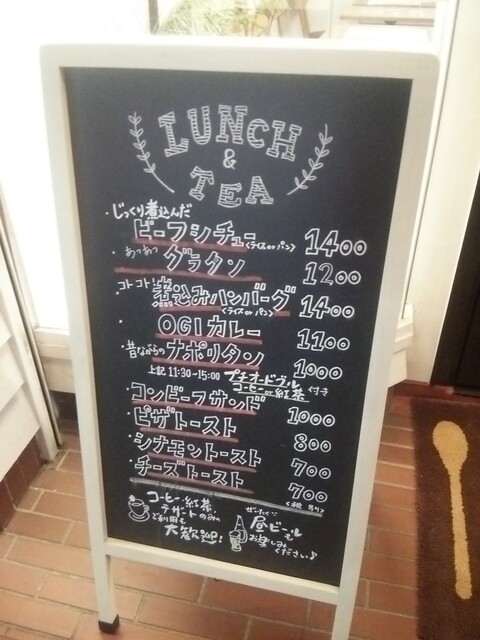 LUNCH
&
TEA
・じっくり煮込んだ
ビーフシチュー<ライスorパン> 1400
・あつあつ グラタン 1200
・コトコト! 煮込みハンバーグ 1400
<ライスorパン>
・OGIカレー 1100
・昔ながらの ナポリタン 1000
上記 11:30-15:00 プチオードブル
コーヒーor紅茶 付き
・コンビーフサンド 1000
・ピザトースト 800
・シナモントースト 700
・チーズトースト 700
コーヒー・紅茶
デザートのみの
ご利用も
大歓迎!
ぜいたく
昼ビールも
お楽しみ
ください♪